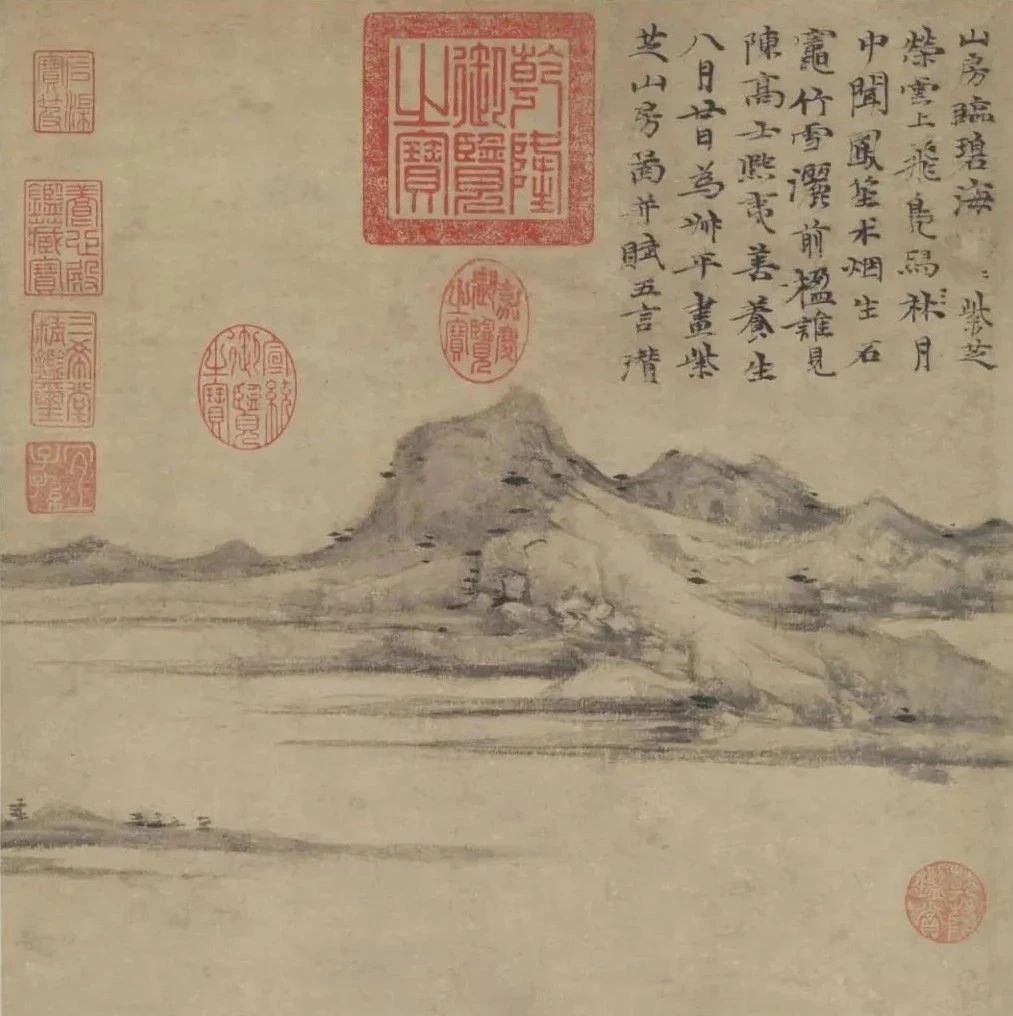 山房臨碧海紫芝
榮雲上飛鳧舄林月
中聞鳳笙术烟生石
竈竹雪灑前楹誰見
陳高士熙夷善養生
八月廿日為叔平畫紫
芝山房啚并賦五言瓚
乾隆御覽之寶
嘉慶御覽之寶
宣統御覽之寶
石渠寶笈
養心殿鑑藏寶
三希堂精鑑璽
宜子孫